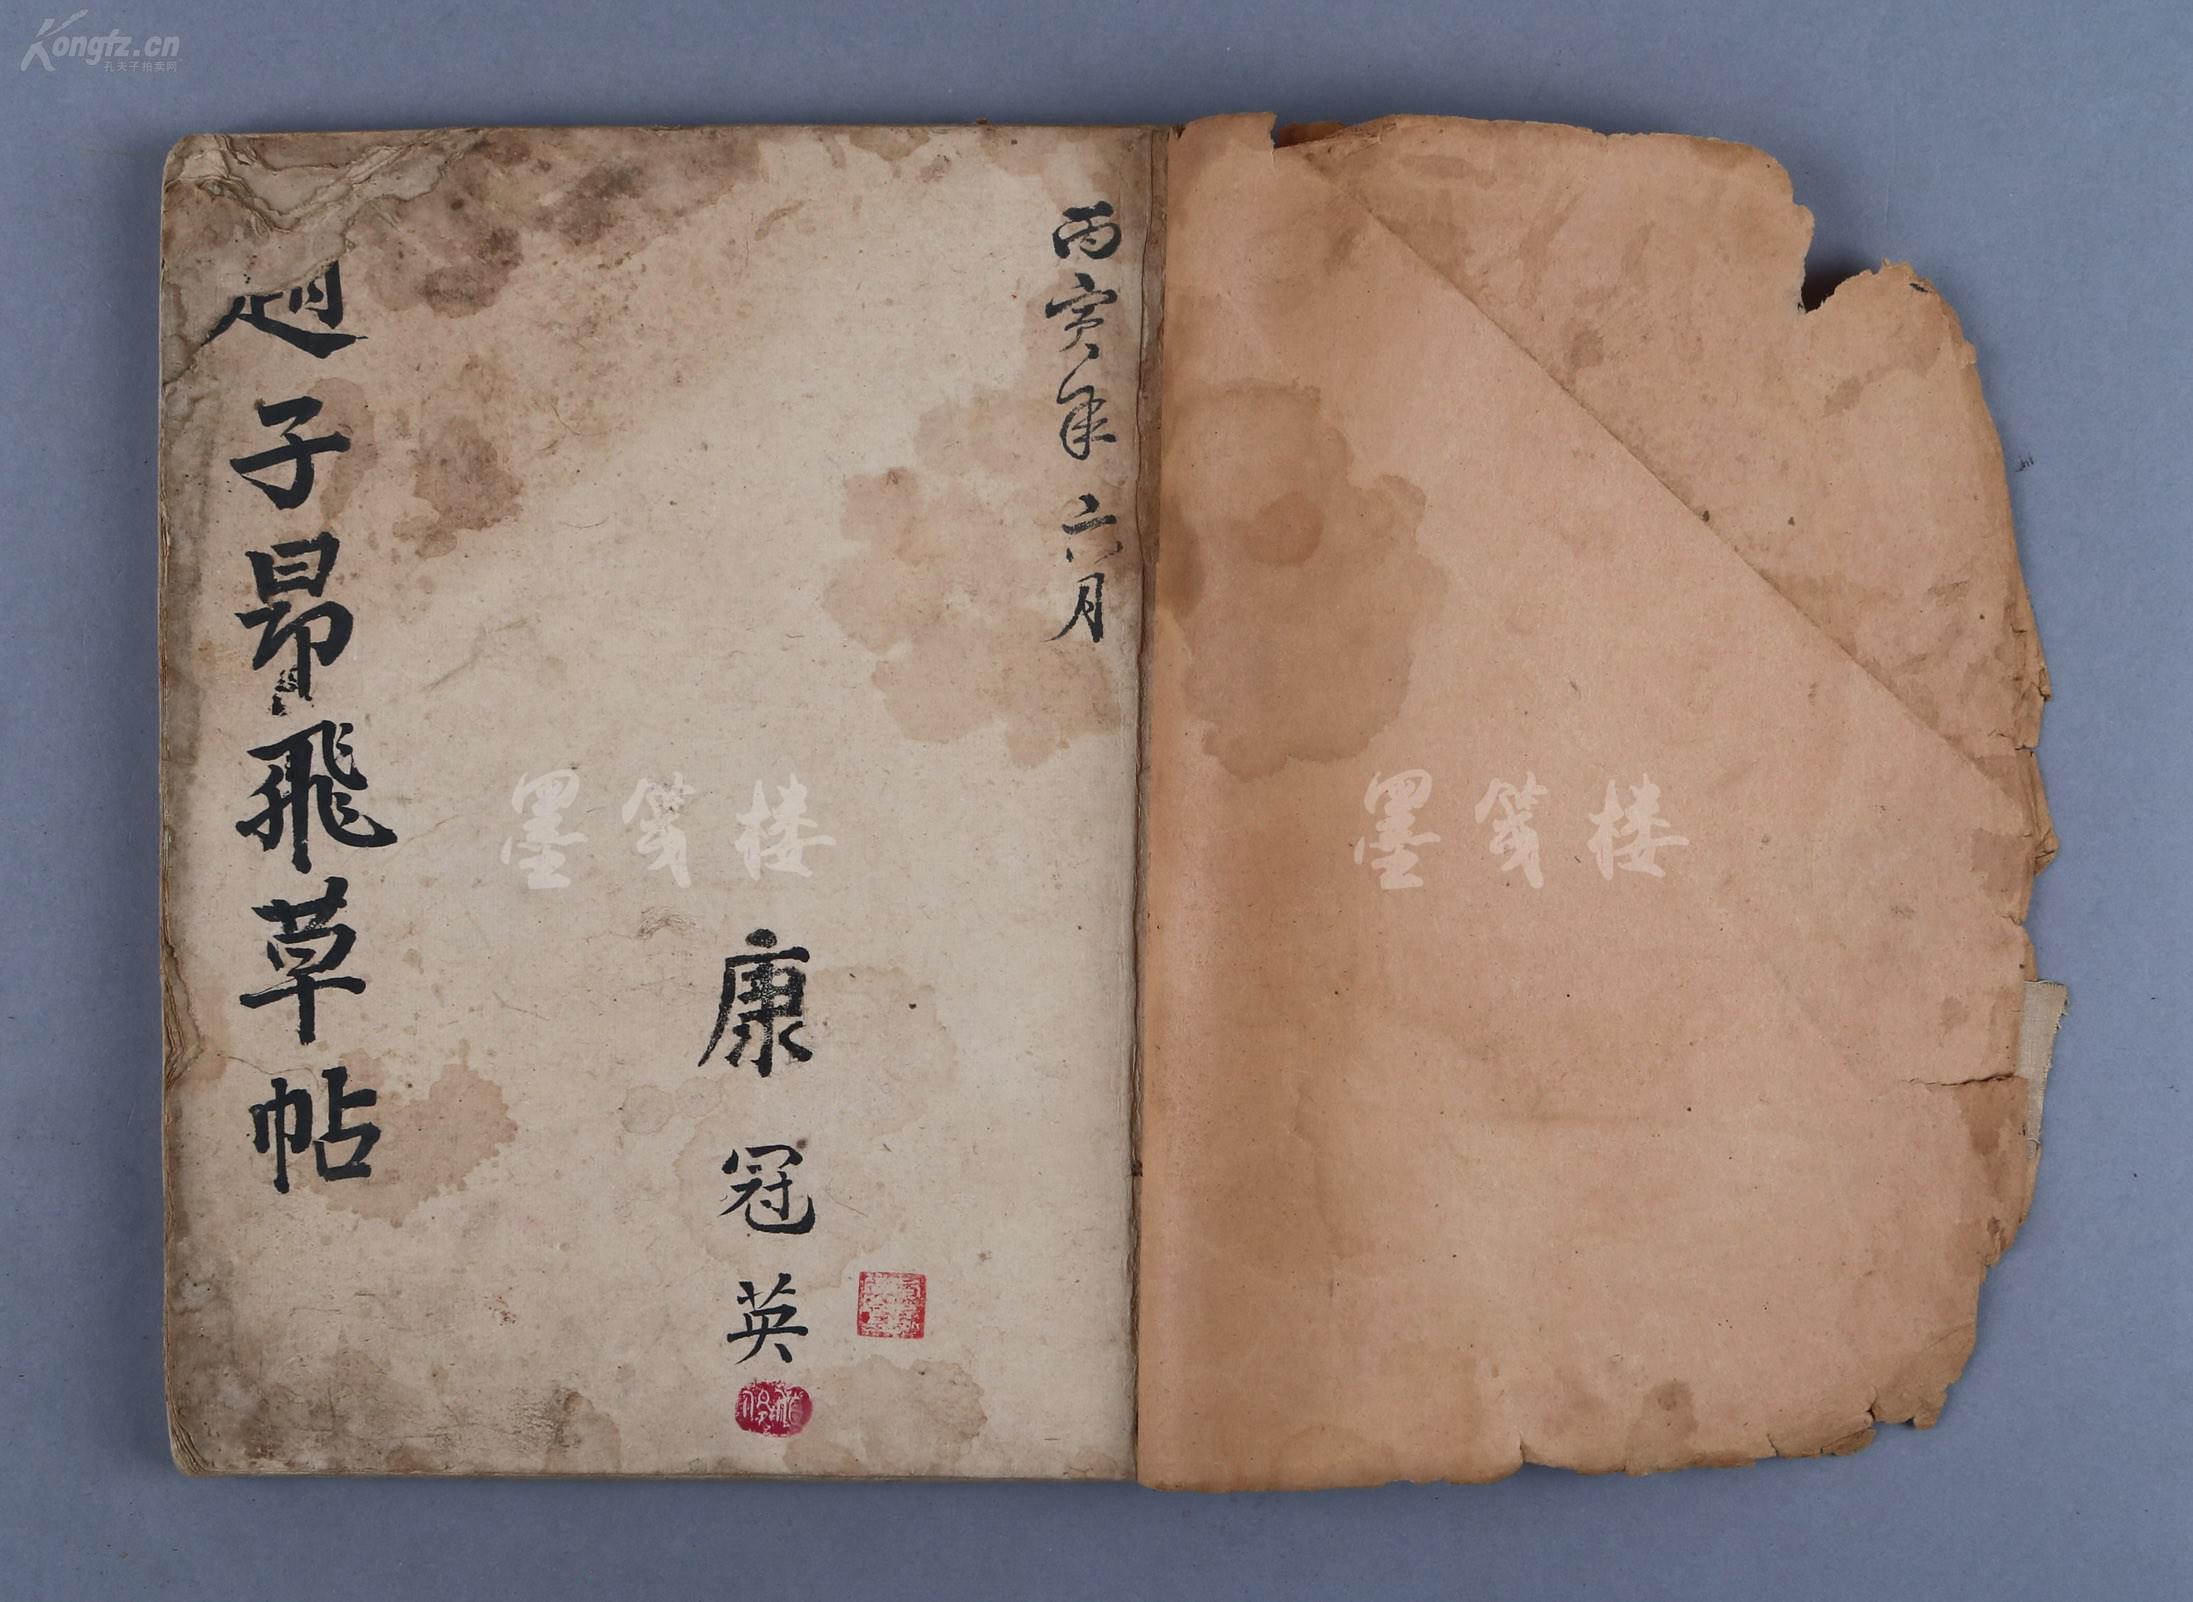 Kongfz.cn
孔夫子拍卖网
丙寅年六月
康冠英
趙子昂飛草帖
墨笺楼
墨笺楼